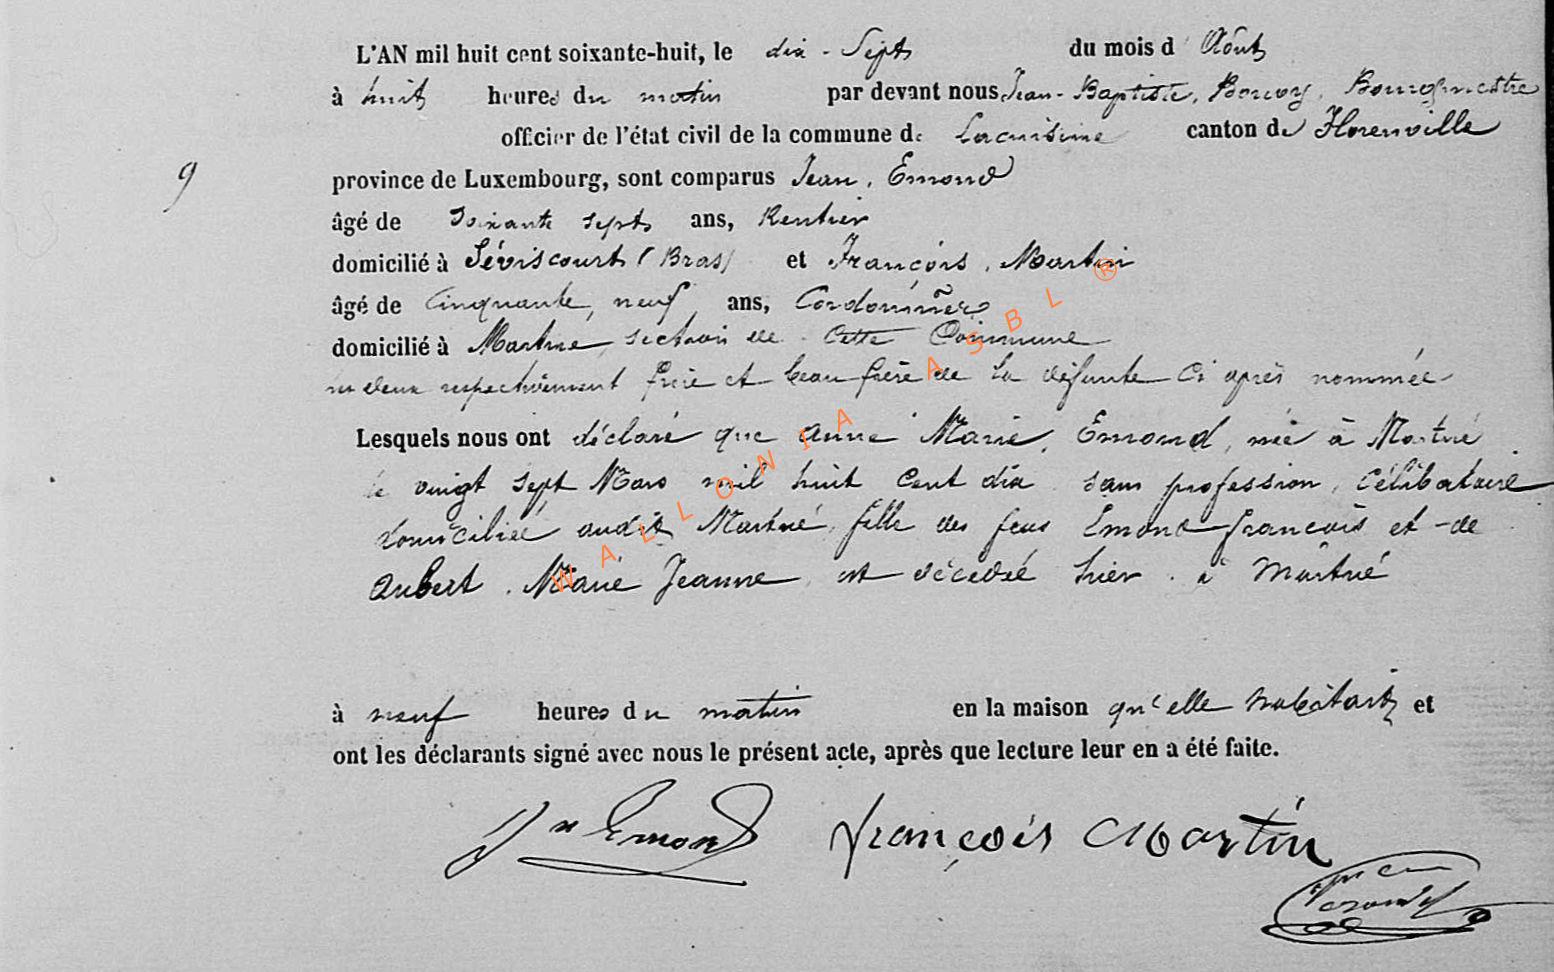 L'AN mil huit cent soixante-huit, le dix-Sept du mois d'Août
à huit heures du matin par devant nous Jean-Baptiste, Bouvy, Bourgmestre
officier de l'état civil de la commune de Lacuisine canton de Florenville
9
province de Luxembourg, sont comparus Jean, Emond
âgé de soixante sept ans, Rentier
domicilié à Séviscourt (Bras) et François, Martin
âgé de Cinquante, neuf ans, Cordonnier
domicilié à Martué, section de cette Commune
deux respectivement frère et beau frère de la défunte ci après nommée
Lesquels nous ont déclaré que Anne Marie, Emond, née à Martué
le vingt sept Mars mil huit cent dix sans profession, célibataire
domiciliée audit Martué, fille des feus Emond françois et de
Aubert, Marie Jeanne, est décedée hier à Martué
à neuf heures du matin en la maison qu'elle habitait et
ont les déclarants signé avec nous le présent acte, après que lecture leur en a été faite.
Jn Emond François Martin
WALLONIA ASBL ®